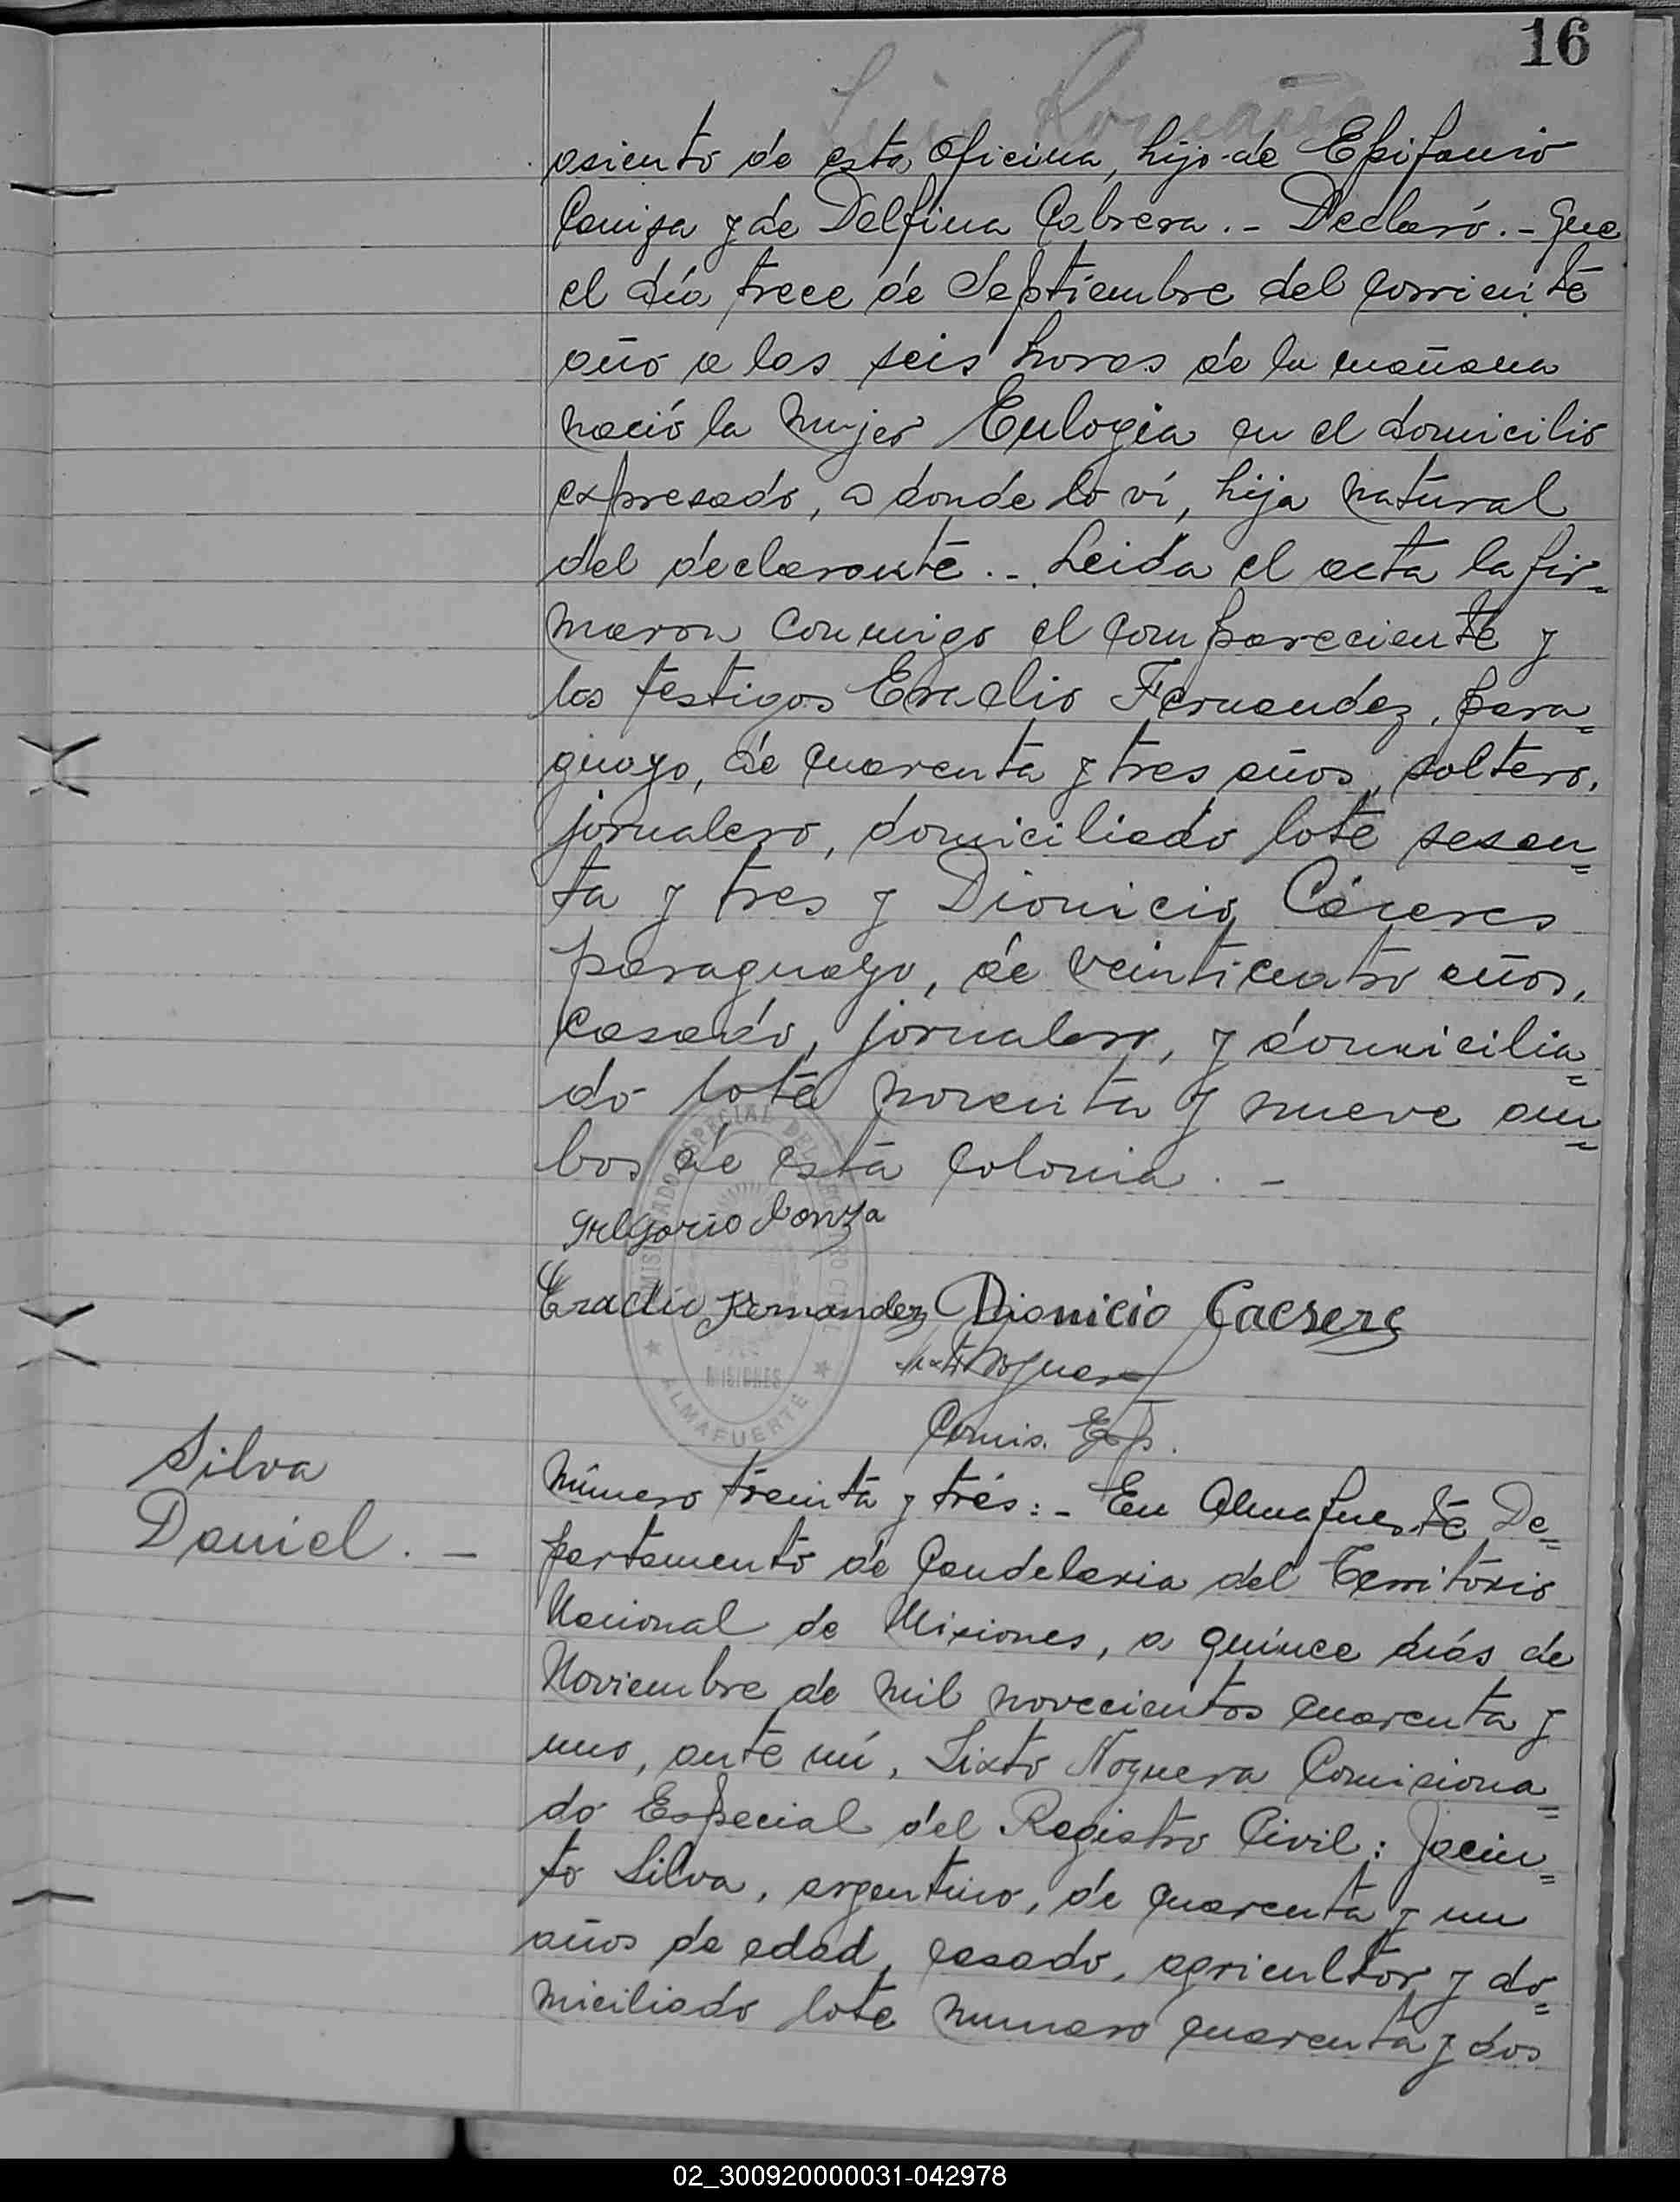 16
Luis Romaña
asiento de esta Oficina, hijo de Epifanio
Caniza y de Delfina Cabrera.- Declaró.- Que
el día trece de Septiembre del corriente
año a las seis horas de la mañana
nació la mujer Eulogia en el domicilio
expresado, a donde lo ví, hija natural
del declarante.- Leida el acta la fir=
maron conmigo el compareciente y
los testigos Eradio Fernandez, para=
guayo, de cuarenta y tres años, soltero,
jornalero, domiciliado lote sesen=
ta y tres y Dionicio Cáceres
paraguayo, de veinticuatro años,
casado, jornalero, y domicilia=
do lote noventa y nueve am=
bos de esta colonia.-
Gregorio
Eradio Fernandez Dionicio Caesere
Sixto Noguera
Comis. Esp.
COMISIONADO ESPECIAL DEL REGISTRO CIVIL
MISIONES
ALMAFUERTE
Silva
Daniel.-
Número treinta y trés:- En Almafuerte De=
partamento de Candelaria del Territorio
Nacional de Misiones, a quince días de
Noviembre de mil novecientos cuarenta y
uno, ante mí, Sixto Noguera Comisiona=
do Especial del Registro Civil: Jacin=
to Silva, argentino, de cuarenta y un
años de edad, casado, agricultor y do=
miciliado lote numero cuarenta y dos
02_300920000031-042978